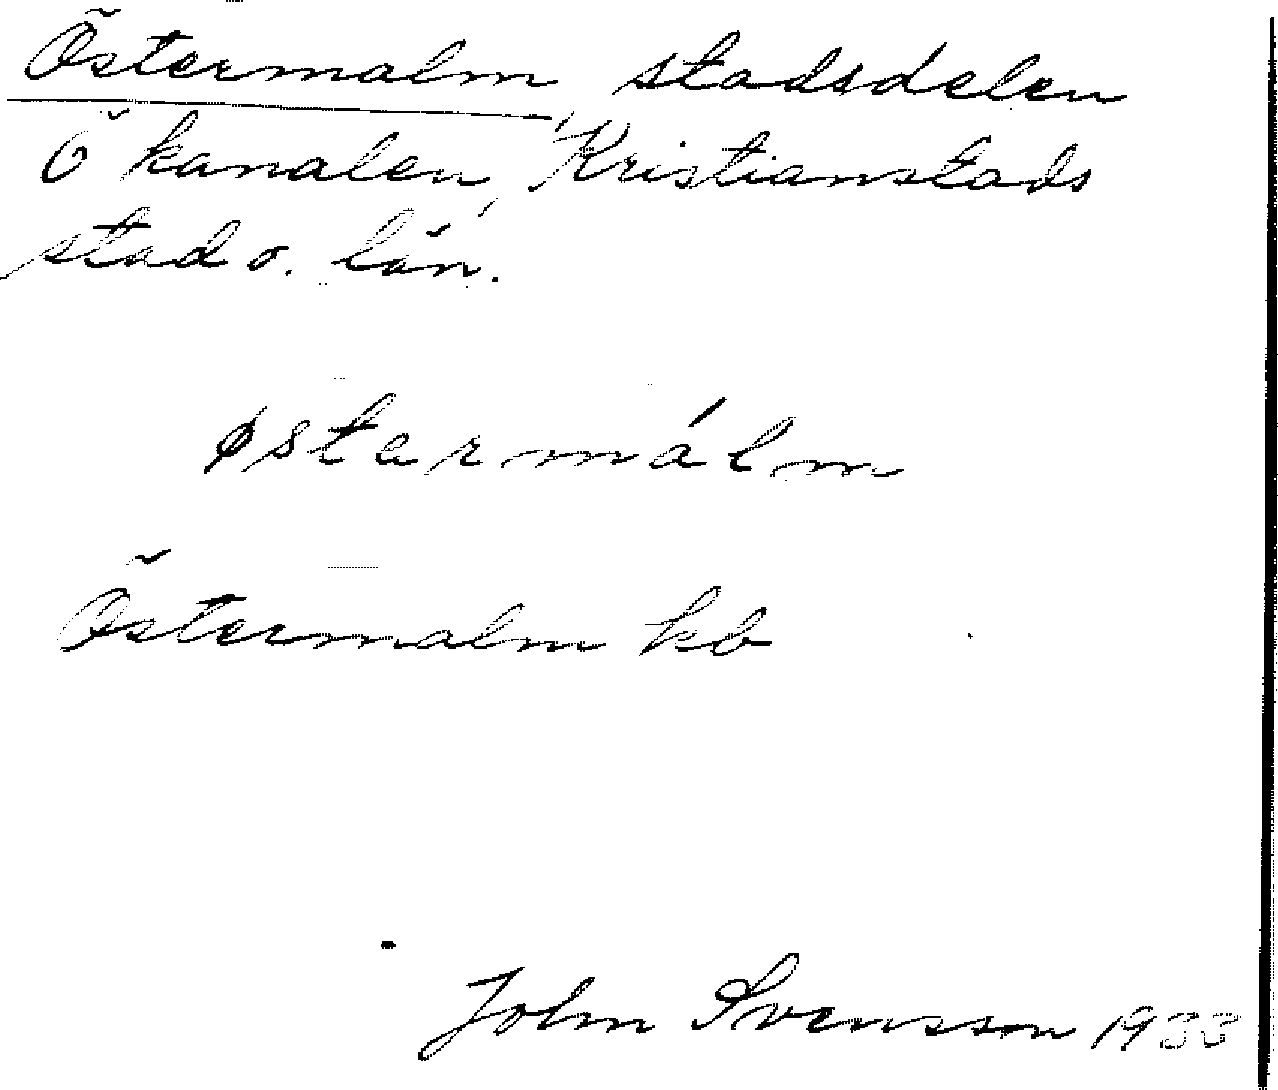 Östermalm, stadsdelen
Ö kanalen, Kristianstads
stad o. län.
østarmálm
Östermalm kb
John Svensson 1933